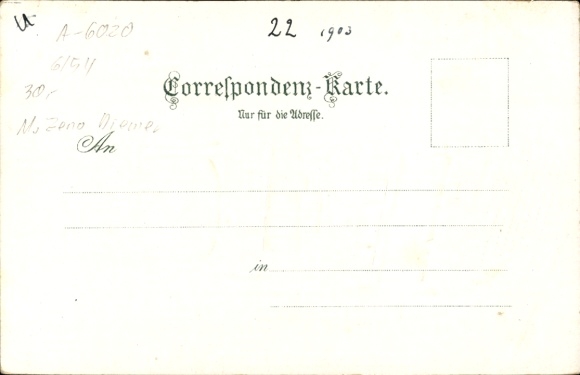 22 1903
A-6020
6/54
30,-
Correspondenz-Karte.
Nur für die Adresse.
Zeno Diemer
An
in